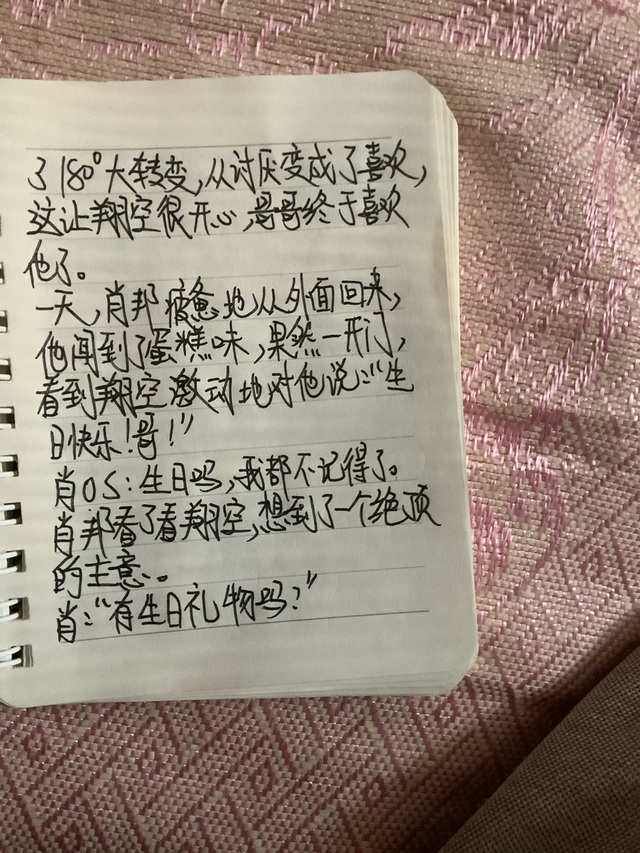 了180°大转变,从讨厌变成了喜欢,
这让翔空很开心,哥哥终于喜欢
他了。
一天,肖邦疲惫地从外面回来,
他闻到了蛋糕味,果然一开门,
看到翔空激动地对他说:“生
日快乐!哥!”
肖OS:生日吗,我都不记得了。
肖邦看了看翔空,想到了一个绝顶
的主意。
肖:“有生日礼物吗?”